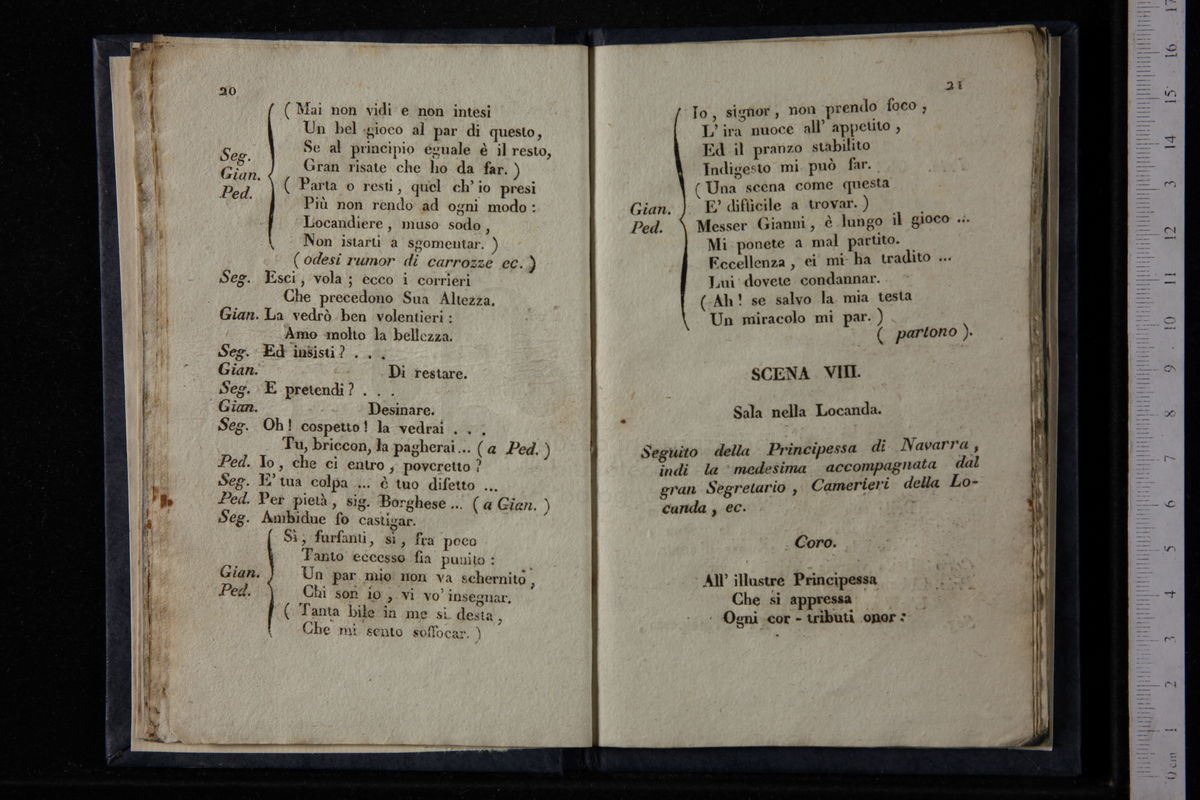 20
Seg.
Gian.
Ped.
( Mai non vidi e non intesi
Un bel gioco al par di questo,
Se al principio eguale è il resto,
Gran risate che ho da far. )
( Parta o resti, quel ch' io presi
Più non rendo ad ogni modo :
Locandiere, muso sodo,
Non istarti a sgomentar. )
( odesi rumor di carrozze ec. )
Seg. Esci, vola ; ecco i corrieri
Che precedono Sua Altezza.
Gian. La vedrò ben volentieri :
Amo molto la bellezza.
Seg. Ed insisti ? . . .
Gian. Di restare.
Seg. E pretendi ? . . .
Gian. Desinare.
Seg. Oh ! cospetto ! la vedrai . . .
Tu, briccon, la pagherai ... ( a Ped. )
Ped. Io, che ci entro, poveretto ?
Seg. E' tua colpa ... è tuo difetto ...
Ped. Per pietà, sig. Borghese ... ( a Gian. )
Seg. Ambidue fo castigar.
Gian.
Ped.
Sì, furfanti, sì, fra poco
Tanto eccesso fia punito :
Un par mio non va schernito,
Chi son io, vi vo' insegnar.
( Tanta bile in me si desta,
Che mi sento soffocar. )
21
Gian.
Ped.
Io, signor, non prendo foco,
L' ira nuoce all' appetito,
Ed il pranzo stabilito
Indigesto mi può far.
( Una scena come questa
E' difficile a trovar. )
Messer Gianni, è lungo il gioco ...
Mi ponete a mal partito.
Eccellenza, ei mi ha tradito ...
Lui dovete condannar.
( Ah ! se salvo la mia testa
Un miracolo mi par. )
( partono ).
SCENA VIII.
Sala nella Locanda.
Seguito della Principessa di Navarra,
indi la medesima accompagnata dal
gran Segretario, Camerieri della Lo-
canda, ec.
Coro.
All' illustre Principessa
Che si appressa
Ogni cor - tributi onor :
0 cm 1 2 3 4 5 6 7 8 9 10 11 12 13 14 15 16 17